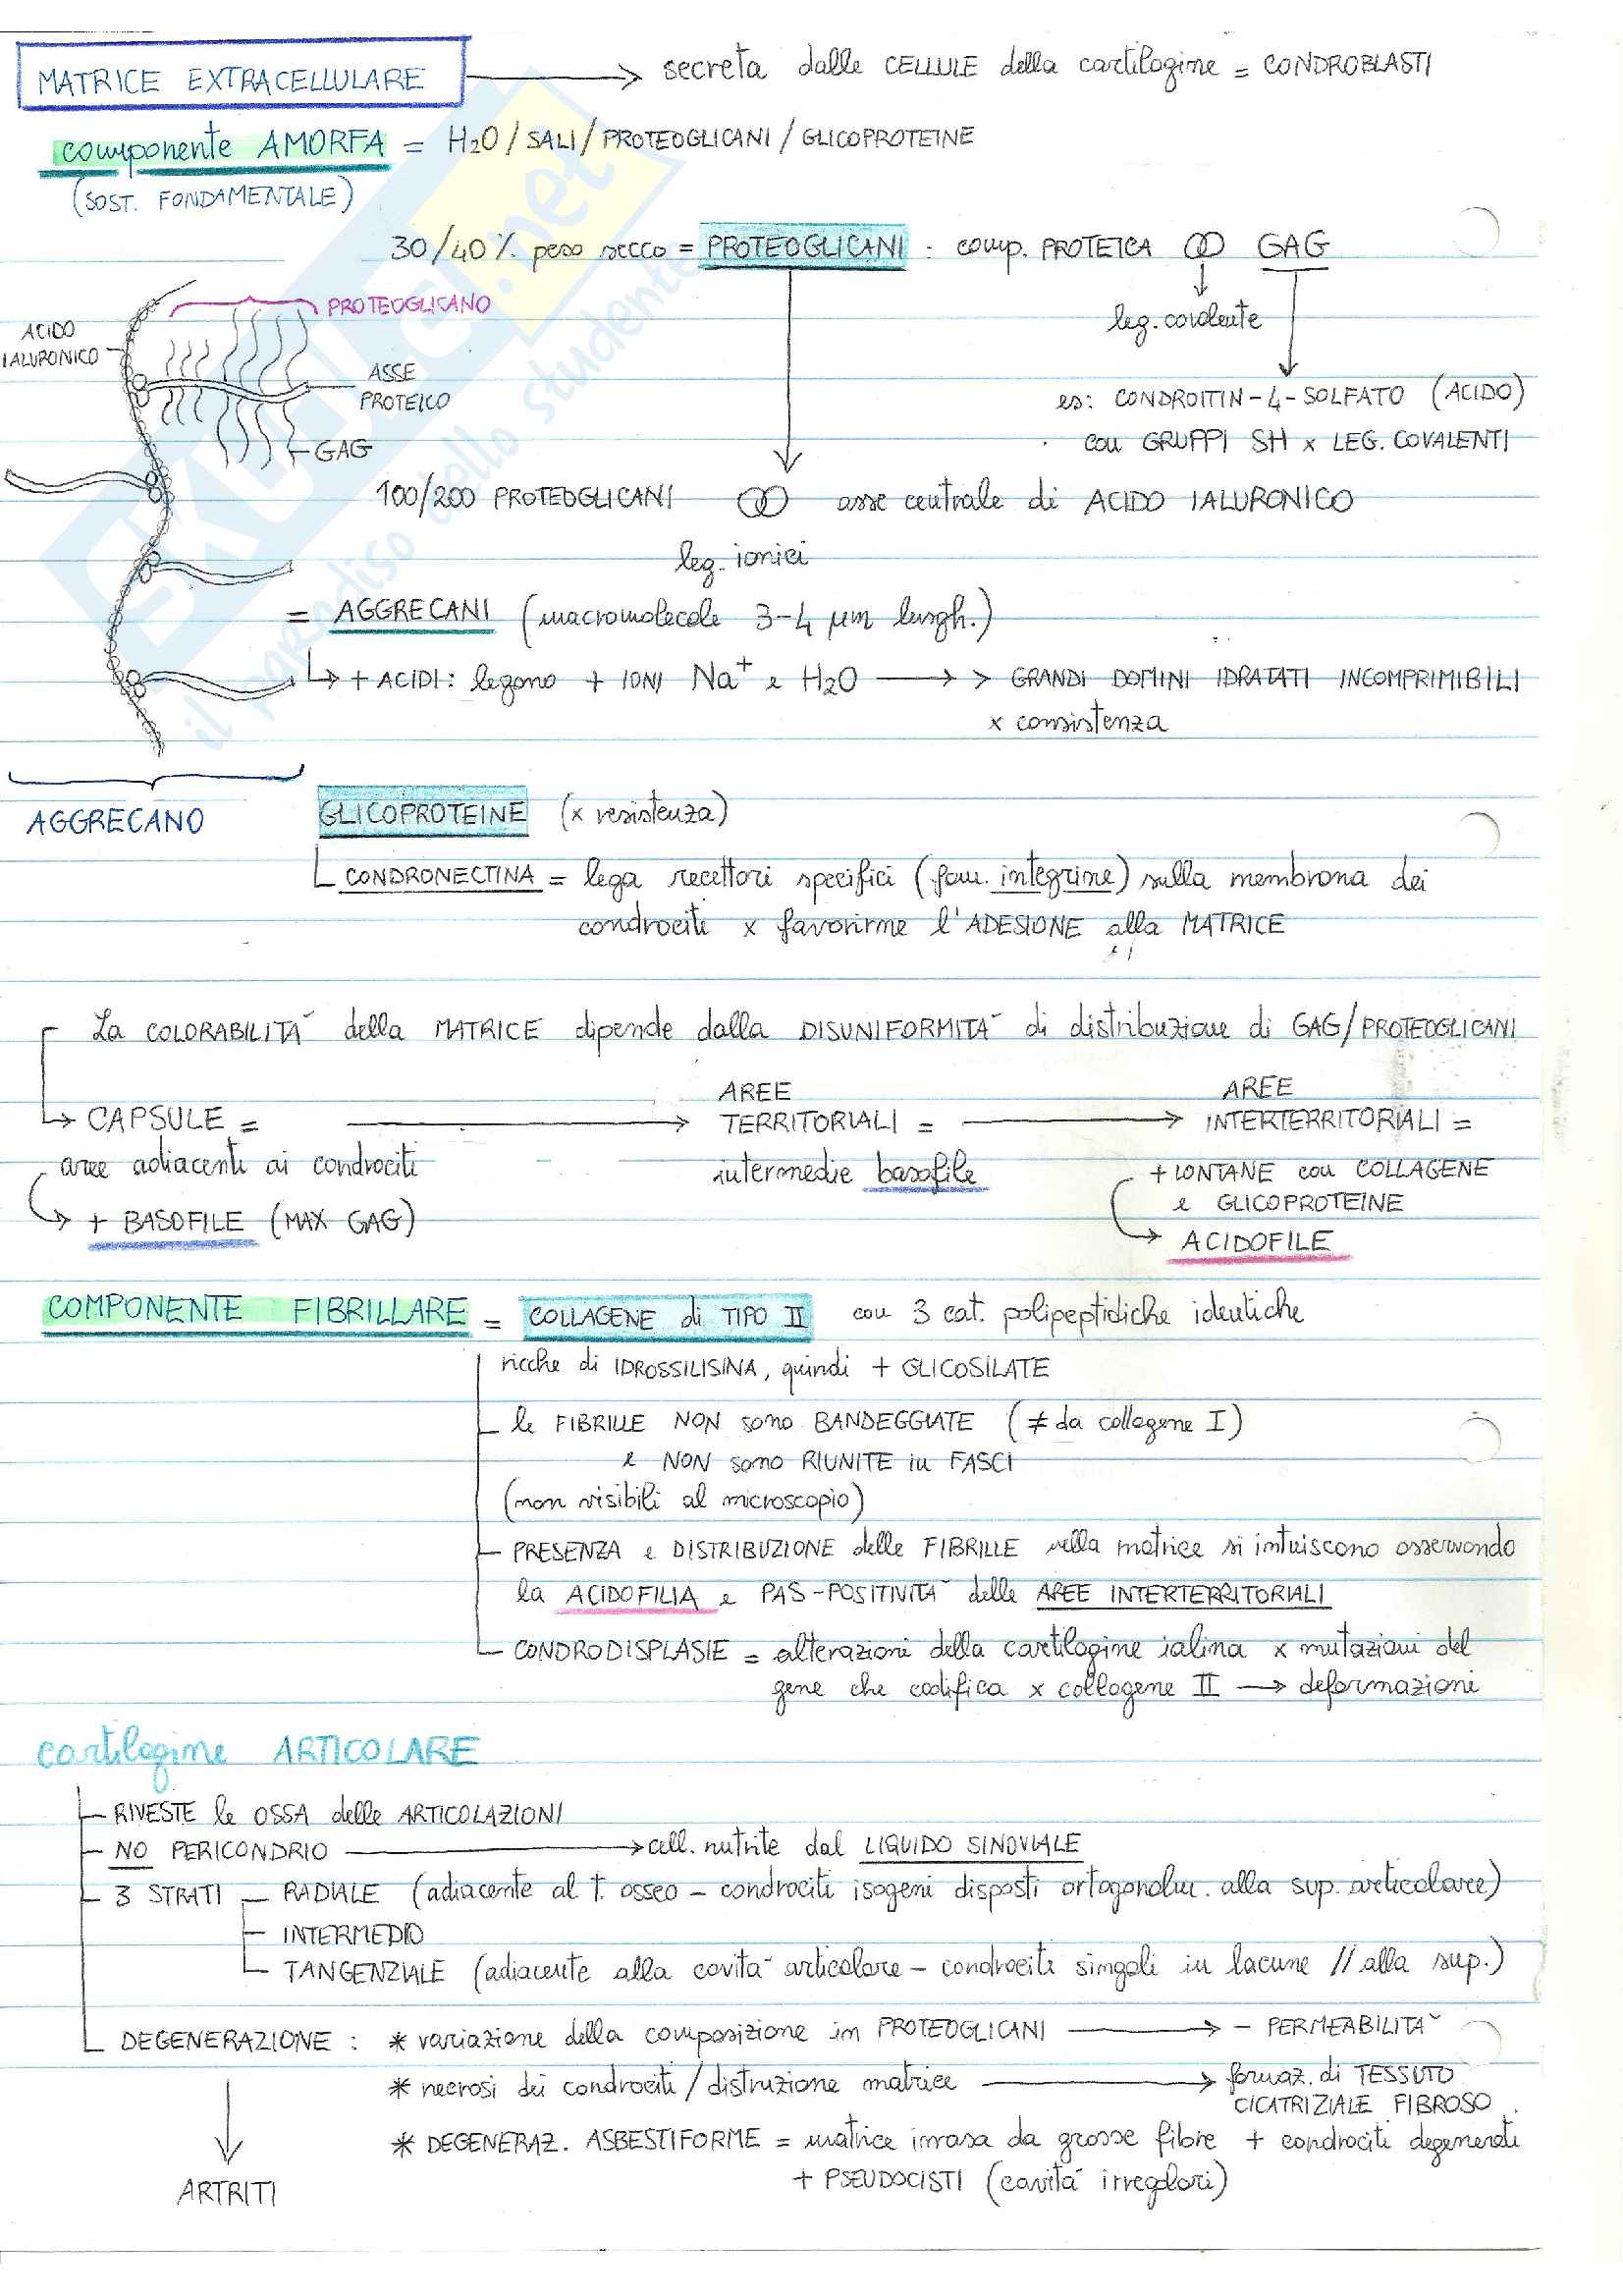 MATRICE EXTRACELLULARE → secreta dalle CELLULE della cartilagine = CONDROBLASTI
componente AMORFA = H2O / SALI / PROTEOGLICANI / GLICOPROTEINE
(SOST. FONDAMENTALE)
30/40 % peso secco = PROTEOGLICANI : comp. PROTEICA GAG
PROTEOGLICANO
leg. covalente
ACIDO
IALURONICO
ASSE
PROTEICO
es: CONDROITIN-4-SOLFATO (ACIDO)
GAG
con GRUPPI SH x LEG. COVALENTI
100/200 PROTEOGLICANI asse centrale di ACIDO IALURONICO
leg. ionici
= AGGRECANI (macromolecole 3-4 µm lungh.)
↳ + ACIDI: legano + IONI Na+ e H2O → > GRANDI DOMINI IDRATATI INCOMPRIMIBILI
x consistenza
AGGRECANO
GLICOPROTEINE (x resistenza)
CONDRONECTINA = lega recettori specifici (fam. integrine) sulla membrana dei
condrociti x favorirne l'ADESIONE alla MATRICE
La COLORABILITA' della MATRICE dipende dalla DISUNIFORMITA' di distribuzione di GAG/PROTEOGLICANI
→ CAPSULE = → AREE
TERRITORIALI = → AREE
INTERTERRITORIALI =
aree adiacenti ai condrociti
intermedie basofile
+ LONTANE con COLLAGENE
e GLICOPROTEINE
→ + BASOFILE (MAX GAG)
→ ACIDOFILE
COMPONENTE FIBRILLARE = COLLAGENE di TIPO II con 3 cat. polipeptidiche identiche
ricche di IDROSSILISINA, quindi + GLICOSILATE
le FIBRILLE NON sono BANDEGGIATE (≠ da collagene I)
e NON sono RIUNITE in FASCI
(non visibili al microscopio)
PRESENZA e DISTRIBUZIONE delle FIBRILLE nella matrice si intuiscono osservando
la ACIDOFILIA e PAS-POSITIVITA' delle AREE INTERTERRITORIALI
CONDRODISPLASIE = alterazioni della cartilagine ialina x mutazioni del
gene che codifica x collagene II → deformazioni
cartilagine ARTICOLARE
RIVESTE le OSSA delle ARTICOLAZIONI
NO PERICONDRIO → cell. nutrite dal LIQUIDO SINOVIALE
3 STRATI — RADIALE (adiacente al T. osseo - condrociti isogeni disposti ortogonalm. alla sup. articolare)
INTERMEDIO
TANGENZIALE (adiacente alla cavita' articolare - condrociti singoli in lacune // alla sup.)
DEGENERAZIONE : * variazione della composizione in PROTEOGLICANI → - PERMEABILITA'
* necrosi dei condrociti / distruzione matrice → formaz. di TESSUTO
CICATRIZIALE FIBROSO
* DEGENERAZ. ASBESTIFORME = matrice invasa da grosse fibre + condrociti degenerati
+ PSEUDOCISTI (cavita' irregolari)
ARTRITI
SKUOLA.net
il paradiso dello studente